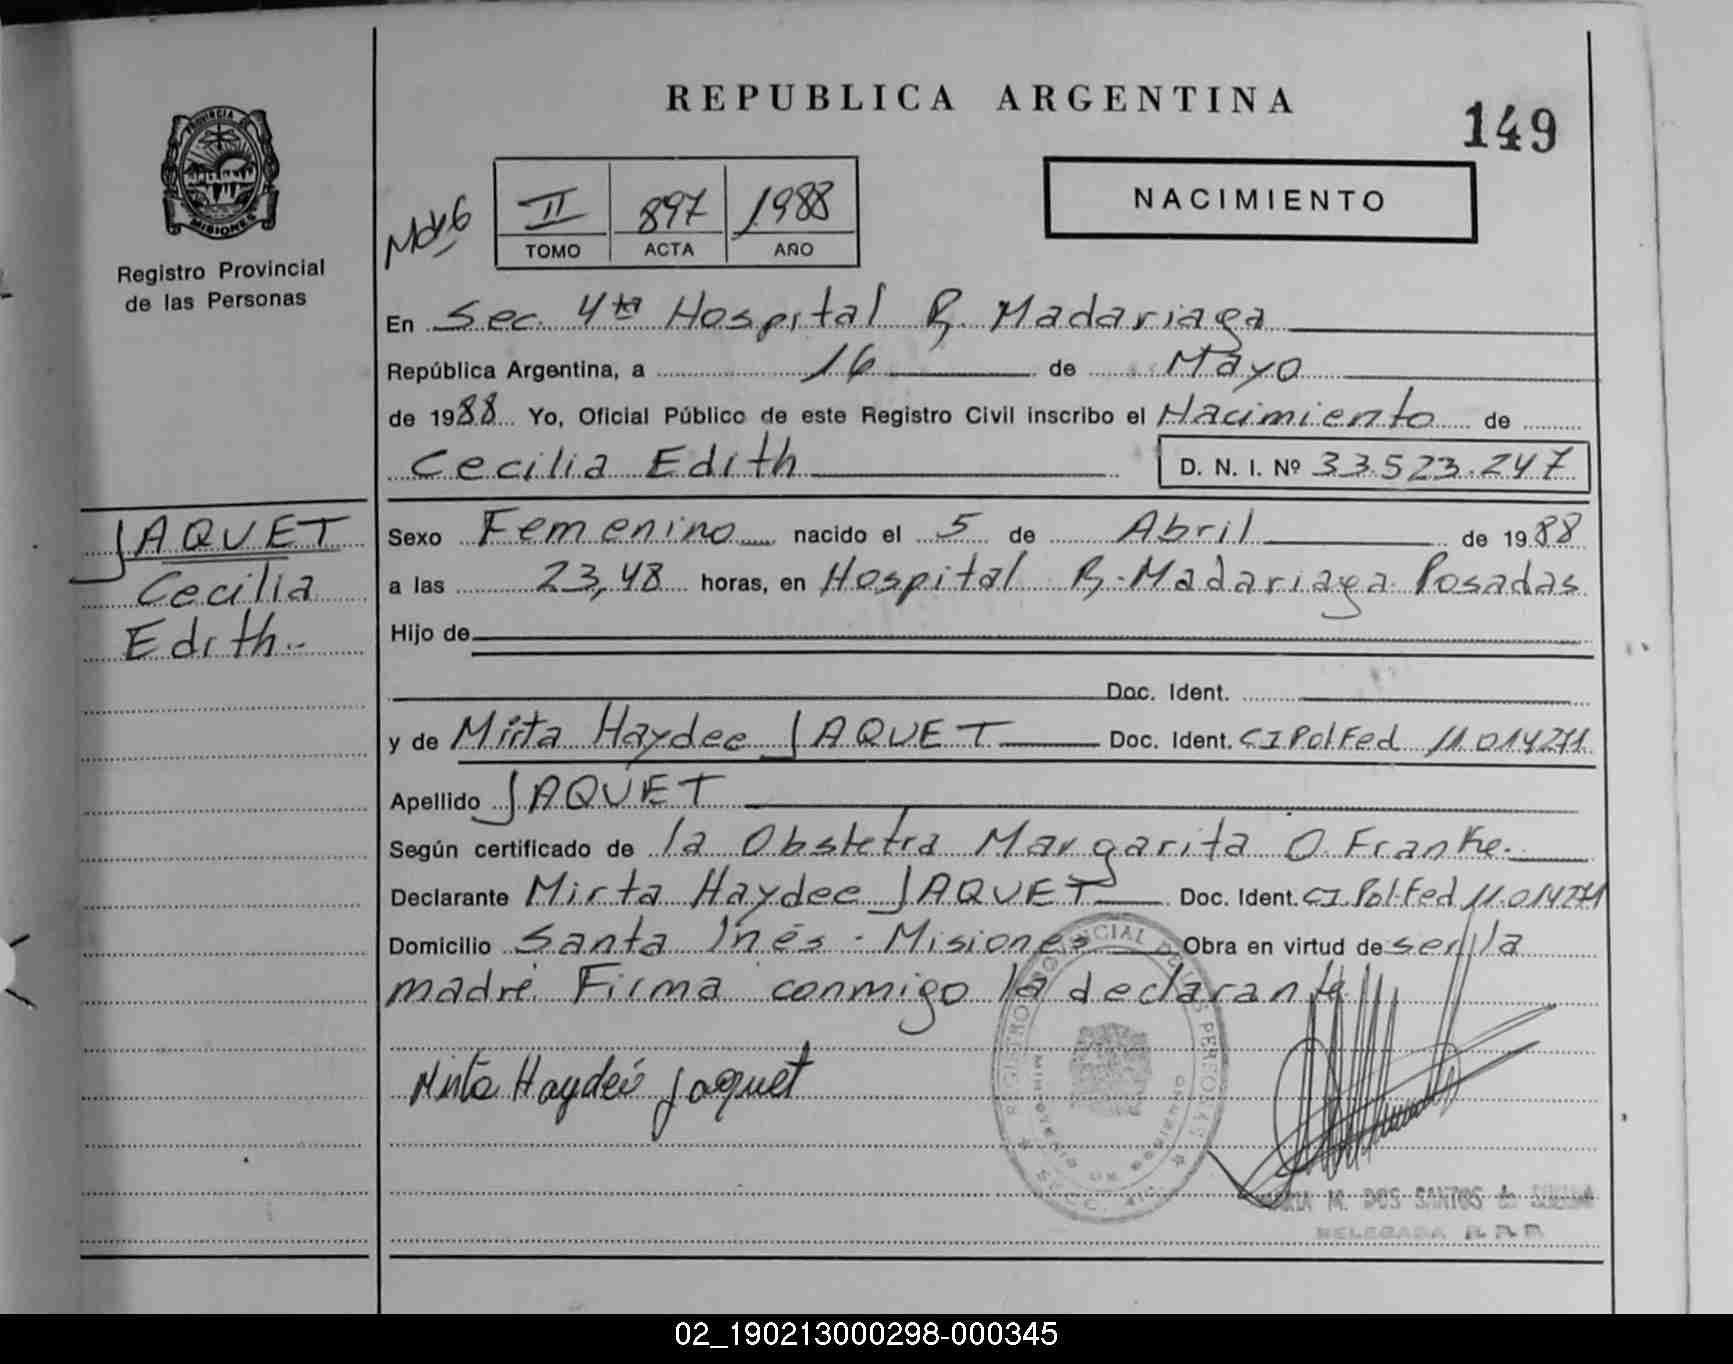 REPUBLICA ARGENTINA
149
PROVINCIA DE
MISIONES
Registro Provincial
de las Personas
II 897 1988
TOMO ACTA AÑO
NACIMIENTO
En Sec. 4ta Hospital R. Madariaga
República Argentina, a 16 de Mayo
de 1988 Yo, Oficial Público de este Registro Civil inscribo el Nacimiento de
Cecilia Edith D. N. I. Nº 33.523.247
JAQUET
Cecilia
Edith.-
Sexo Femenino nacido el 5 de Abril de 1988
a las 23,48 horas, en Hospital R. Madariaga Posadas
Hijo de
Doc. Ident.
y de Mirta Haydee JAQUET Doc. Ident. CI Pol Fed 11.014271
Apellido JAQUET
Según certificado de la Obstetra Margarita O. Franke.
Declarante Mirta Haydee JAQUET Doc. Ident. CI. Pol. Fed 11.014271
Domicilio Santa Inés - Misiones Obra en virtud de ser la
madre. Firma conmigo la declarante
Mirta Haydeé Jaquet
REGISTRO PROVINCIAL DE LAS PERSONAS
MINISTERIO DE GOBIERNO
SECC. 4ta.
MARIA M. DOS SANTOS de
DELEGADA R. P. P.
02_190213000298-000345